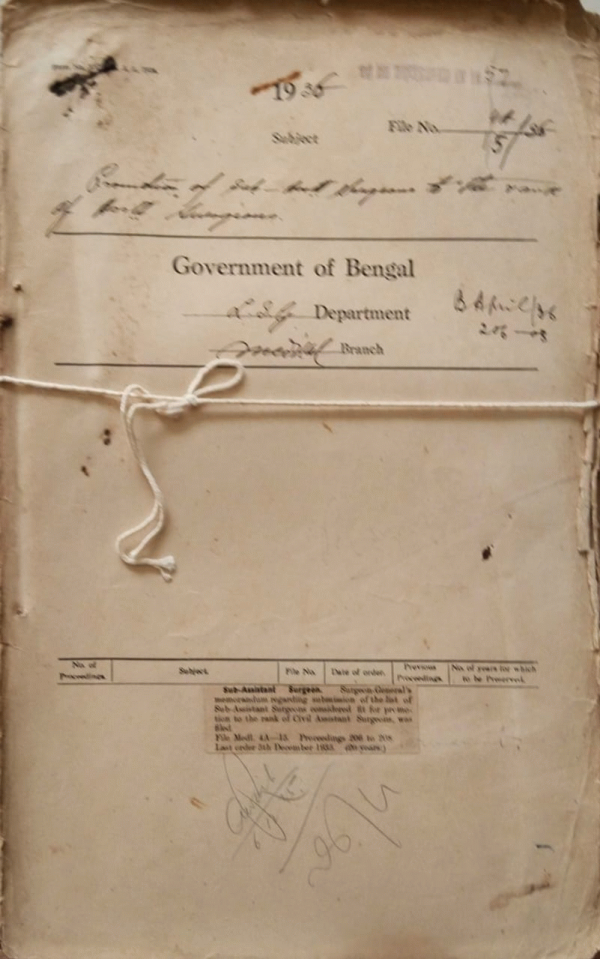 1936
File No. 4A/5/36
Subject
Promotion of Sub-Asst Surgeons to the rank
of Asstt Surgeons.
Government of Bengal
L.S.G Department
B April/36
206-08
Medical Branch
No. of Proceedings.
Subject.
File No.
Date of order.
Previous Proceedings.
No. of years for which to be Preserved.
Sub-Assistant Surgeon. Surgeon-General's
memorandum regarding submission of the list of
Sub-Assistant Surgeons considered fit for promo-
tion to the rank of Civil Assistant Surgeons, was
filed.
File Medl. 4A—15. Proceedings 206 to 208.
Last order 5th December 1935. (20 years.)